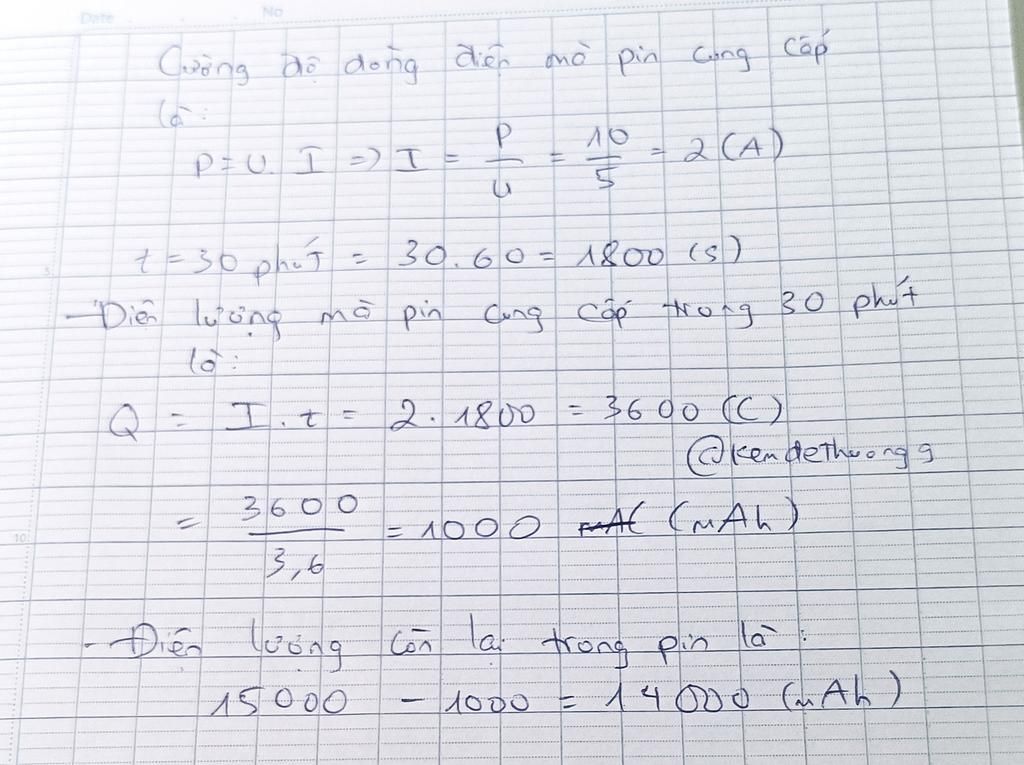 Date No
Cường độ dòng điện mà pin cung cấp
là:
P = U. I => I = P/U = 10/5 = 2 (A)
t = 30 phút = 30.60 = 1800 (s)
- Điện lượng mà pin cung cấp trong 30 phút
là:
Q = I. t = 2. 1800 = 3600 (C)
@kendethuong9
= 3600/3,6 = 1000 (mAh)
10
- Điện lượng còn lại trong pin là:
15000 - 1000 = 14000 (mAh)